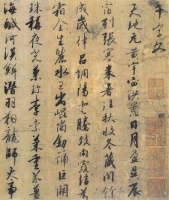 千字文
天地元黃宇宙洪荒日月盈昃辰
宿列張寒來暑往秋收冬藏閏餘
成歲律呂調陽雲騰致雨露結為
霜金生麗水玉出崑崗劍號巨闕
珠稱夜光果珍李柰菜重芥薑
海鹹河淡鱗潛羽翔龍師火帝